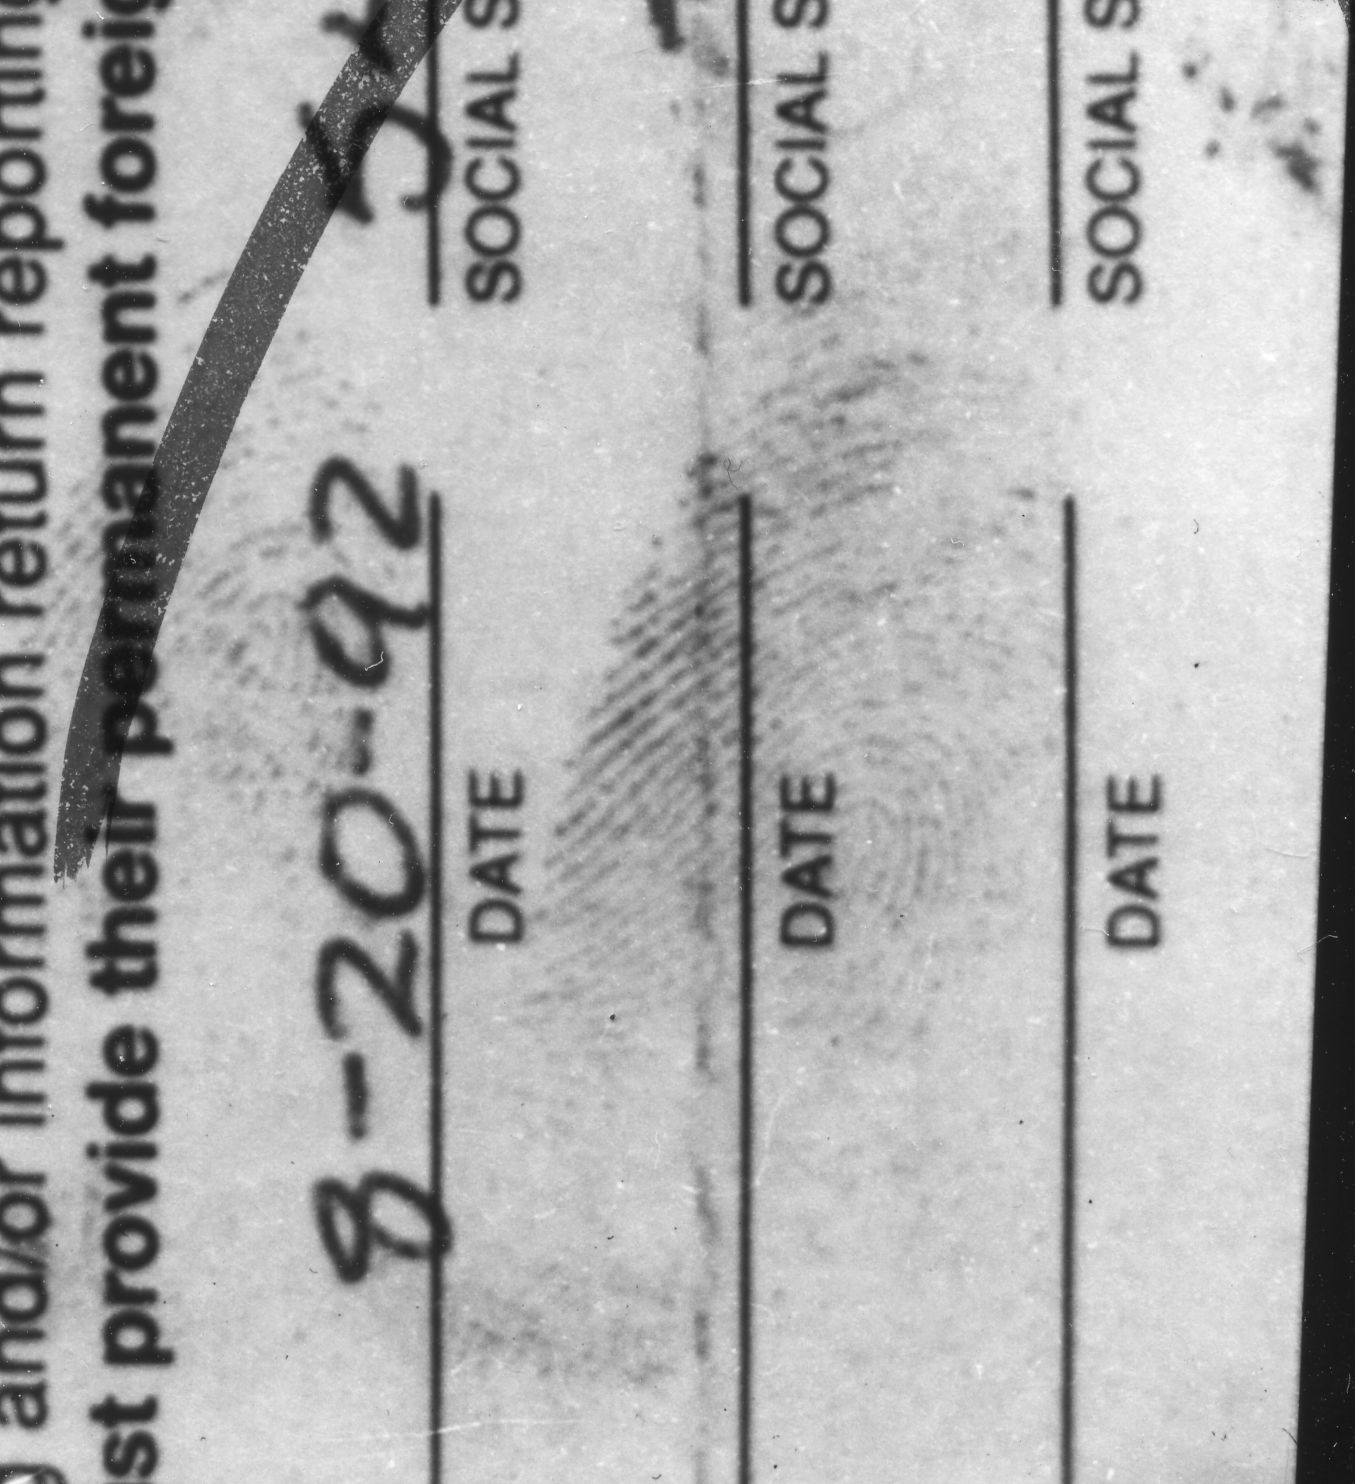 ) and/or information return reporting
ust provide their permanent foreig
8-20-92
DATE SOCIAL S
DATE SOCIAL S
DATE SOCIAL S